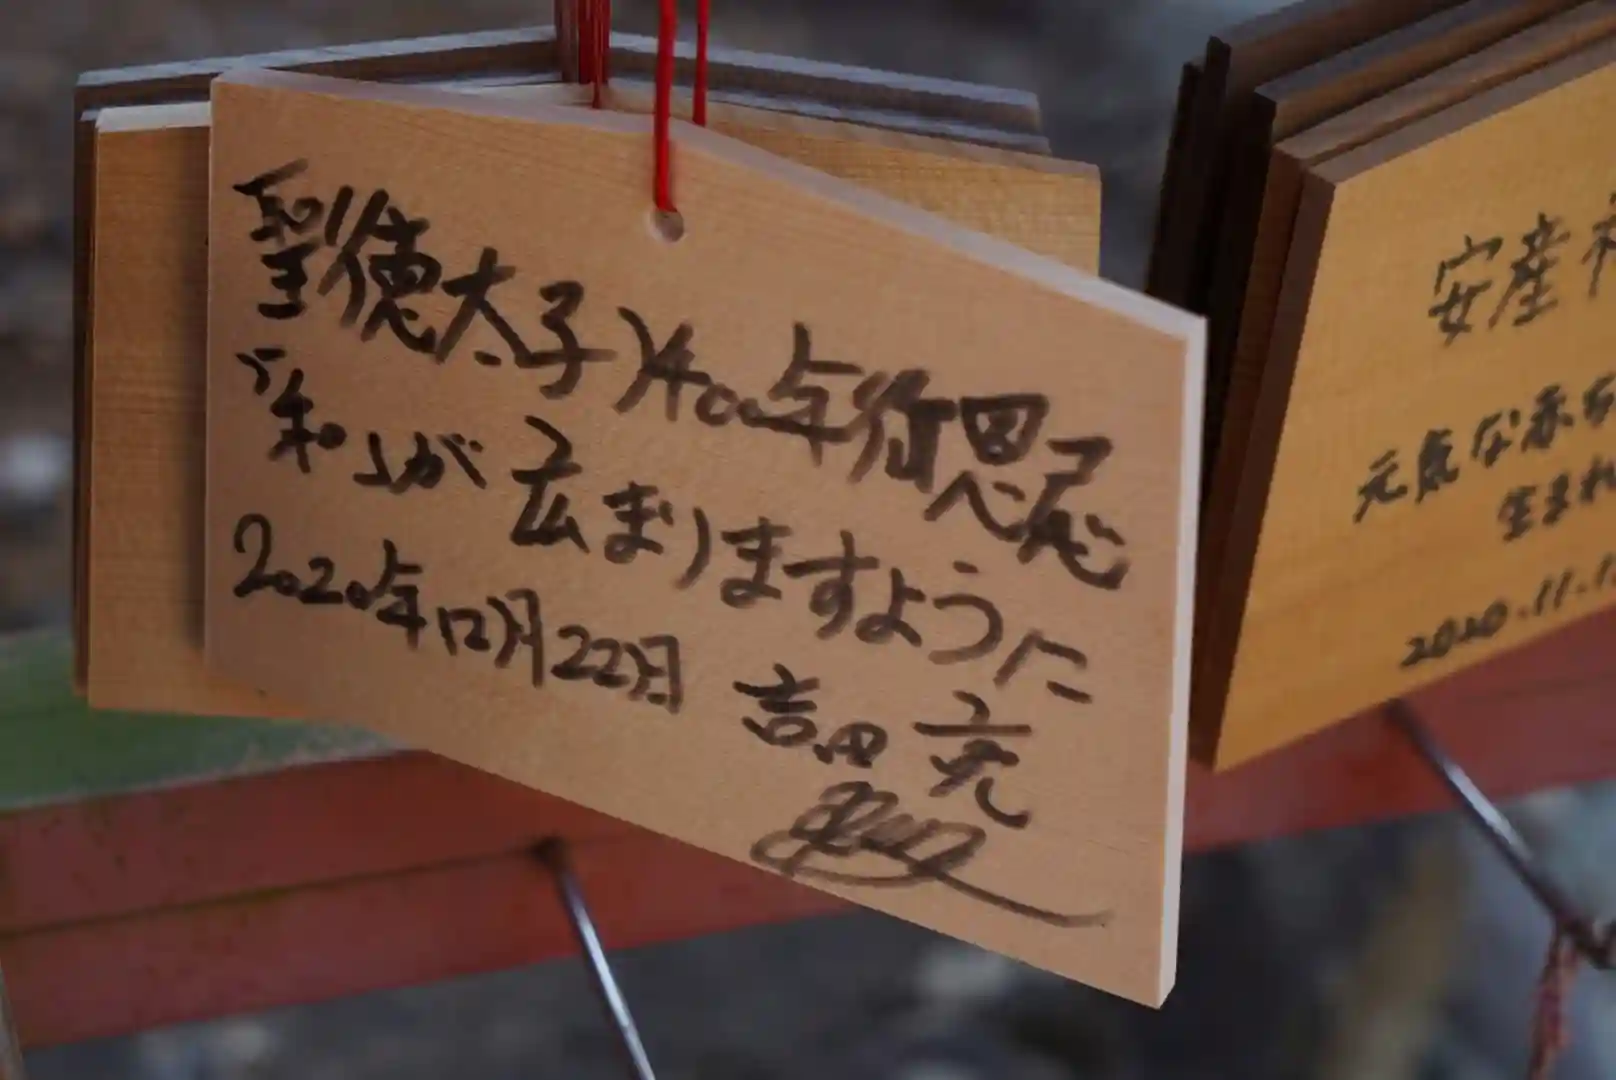 聖徳太子1400年御恩忌
「和」が広まりますように
2020年12月22日 吉田 亮
安産祈
元気な赤ち
生まれ
2020.11.1